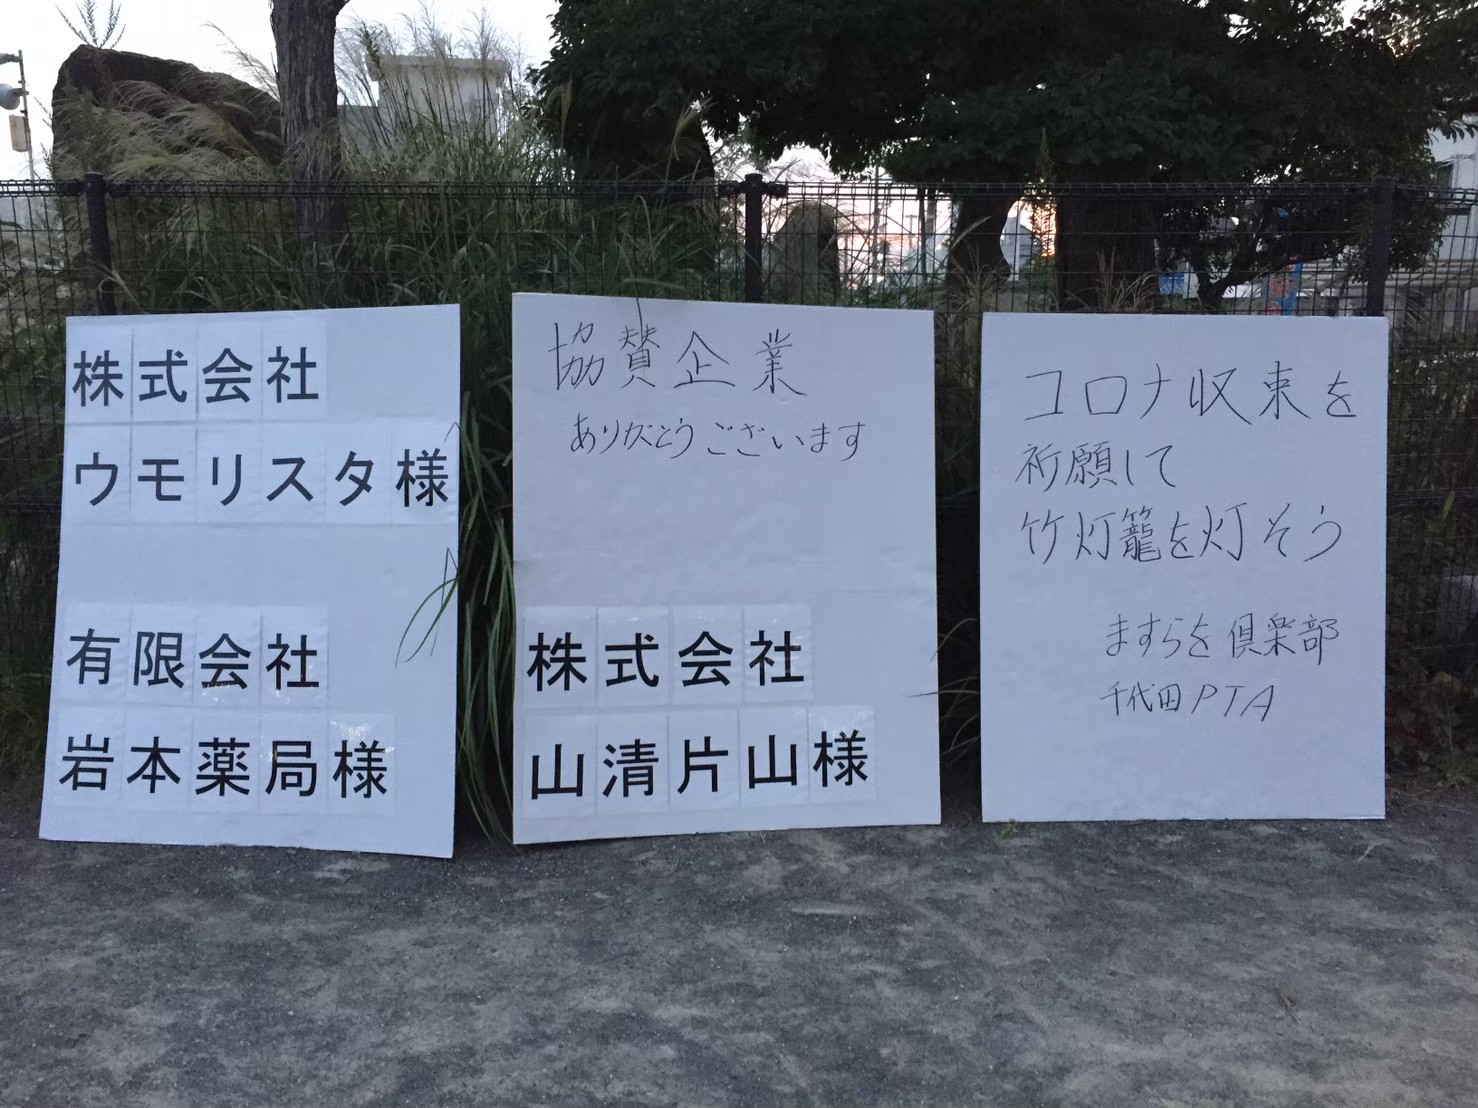 株式会社
ウモリスタ様
有限会社
岩本薬局様
協賛企業
ありがとうございます
株式会社
山清片山様
コロナ収束を
祈願して
竹灯籠を灯そう
ますらを倶楽部
千代田PTA